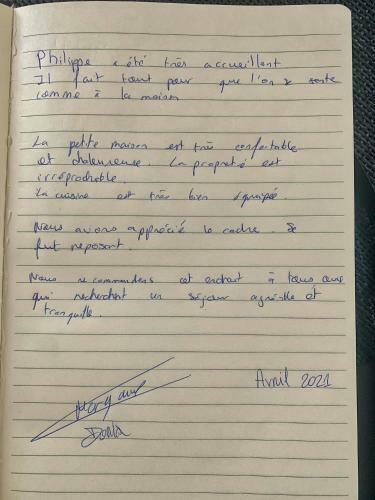 Philippe a été très accueillant
Il fait tout pour que l'on se sente
comme à la maison
La petite maison est très confortable
et chaleureuse. La propreté est
irréprochable.
La cuisine est très bien équipée.
Nous avons apprécié le cadre. Se
fut reposant.
Nous recommandons cet endroit à tous ceux
qui recherchent un séjour agréable et
tranquille.
Avril 2021
Morgane